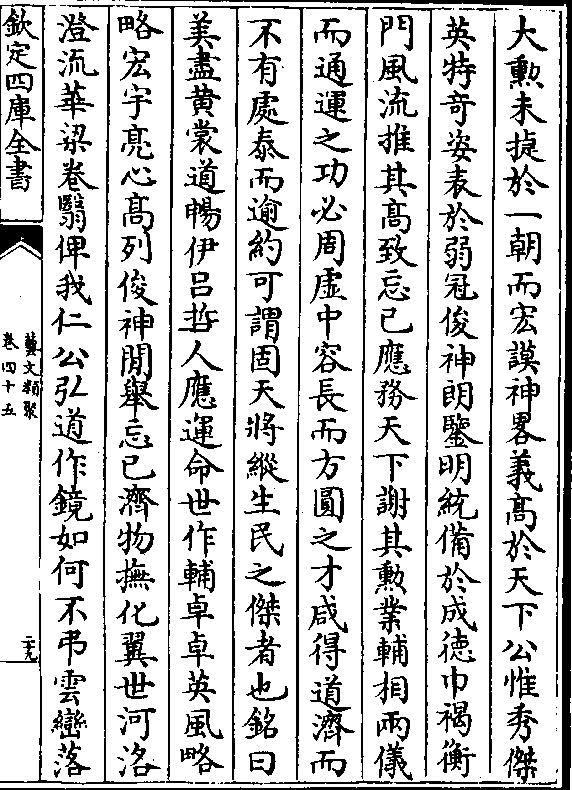 大勲未捷於一朝而宏謨神畧義髙於天下公惟秀傑
英特竒姿表於弱冠俊神朗鑒明統備於成徳巾褐衡
門風流推其髙致忘己應務天下謝其勲業輔相兩儀
而通運之功必周虚中容長而方圓之才咸得道濟而
不有處泰而逾約可謂固天將縱生民之傑者也銘曰
美盡黄裳道暢伊吕哲人應運命世作輔卓卓英風略
略宏宇亮心髙列俊神閒舉忘己濟物撫化翼世河洛
澄流華梁卷翳俾我仁公弘道作鏡如何不弔雲巒落
欽定四庫全書
藝文類聚
卷四十五
二十九